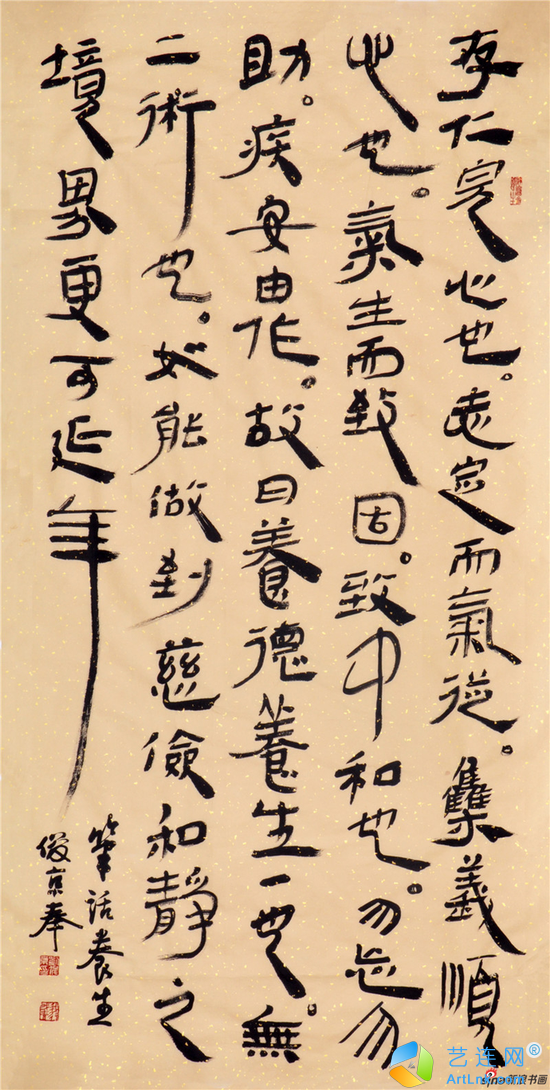 存仁完心也。志定而氣從。集義順
心也。氣生而致固。致中和也。勿忘勿
助。疾安由作。故曰養德養生一也。無
二術也。如能做到慈儉和靜之
境界更可延年
筆話養生
俊京奉
艺连网®
新浪书画